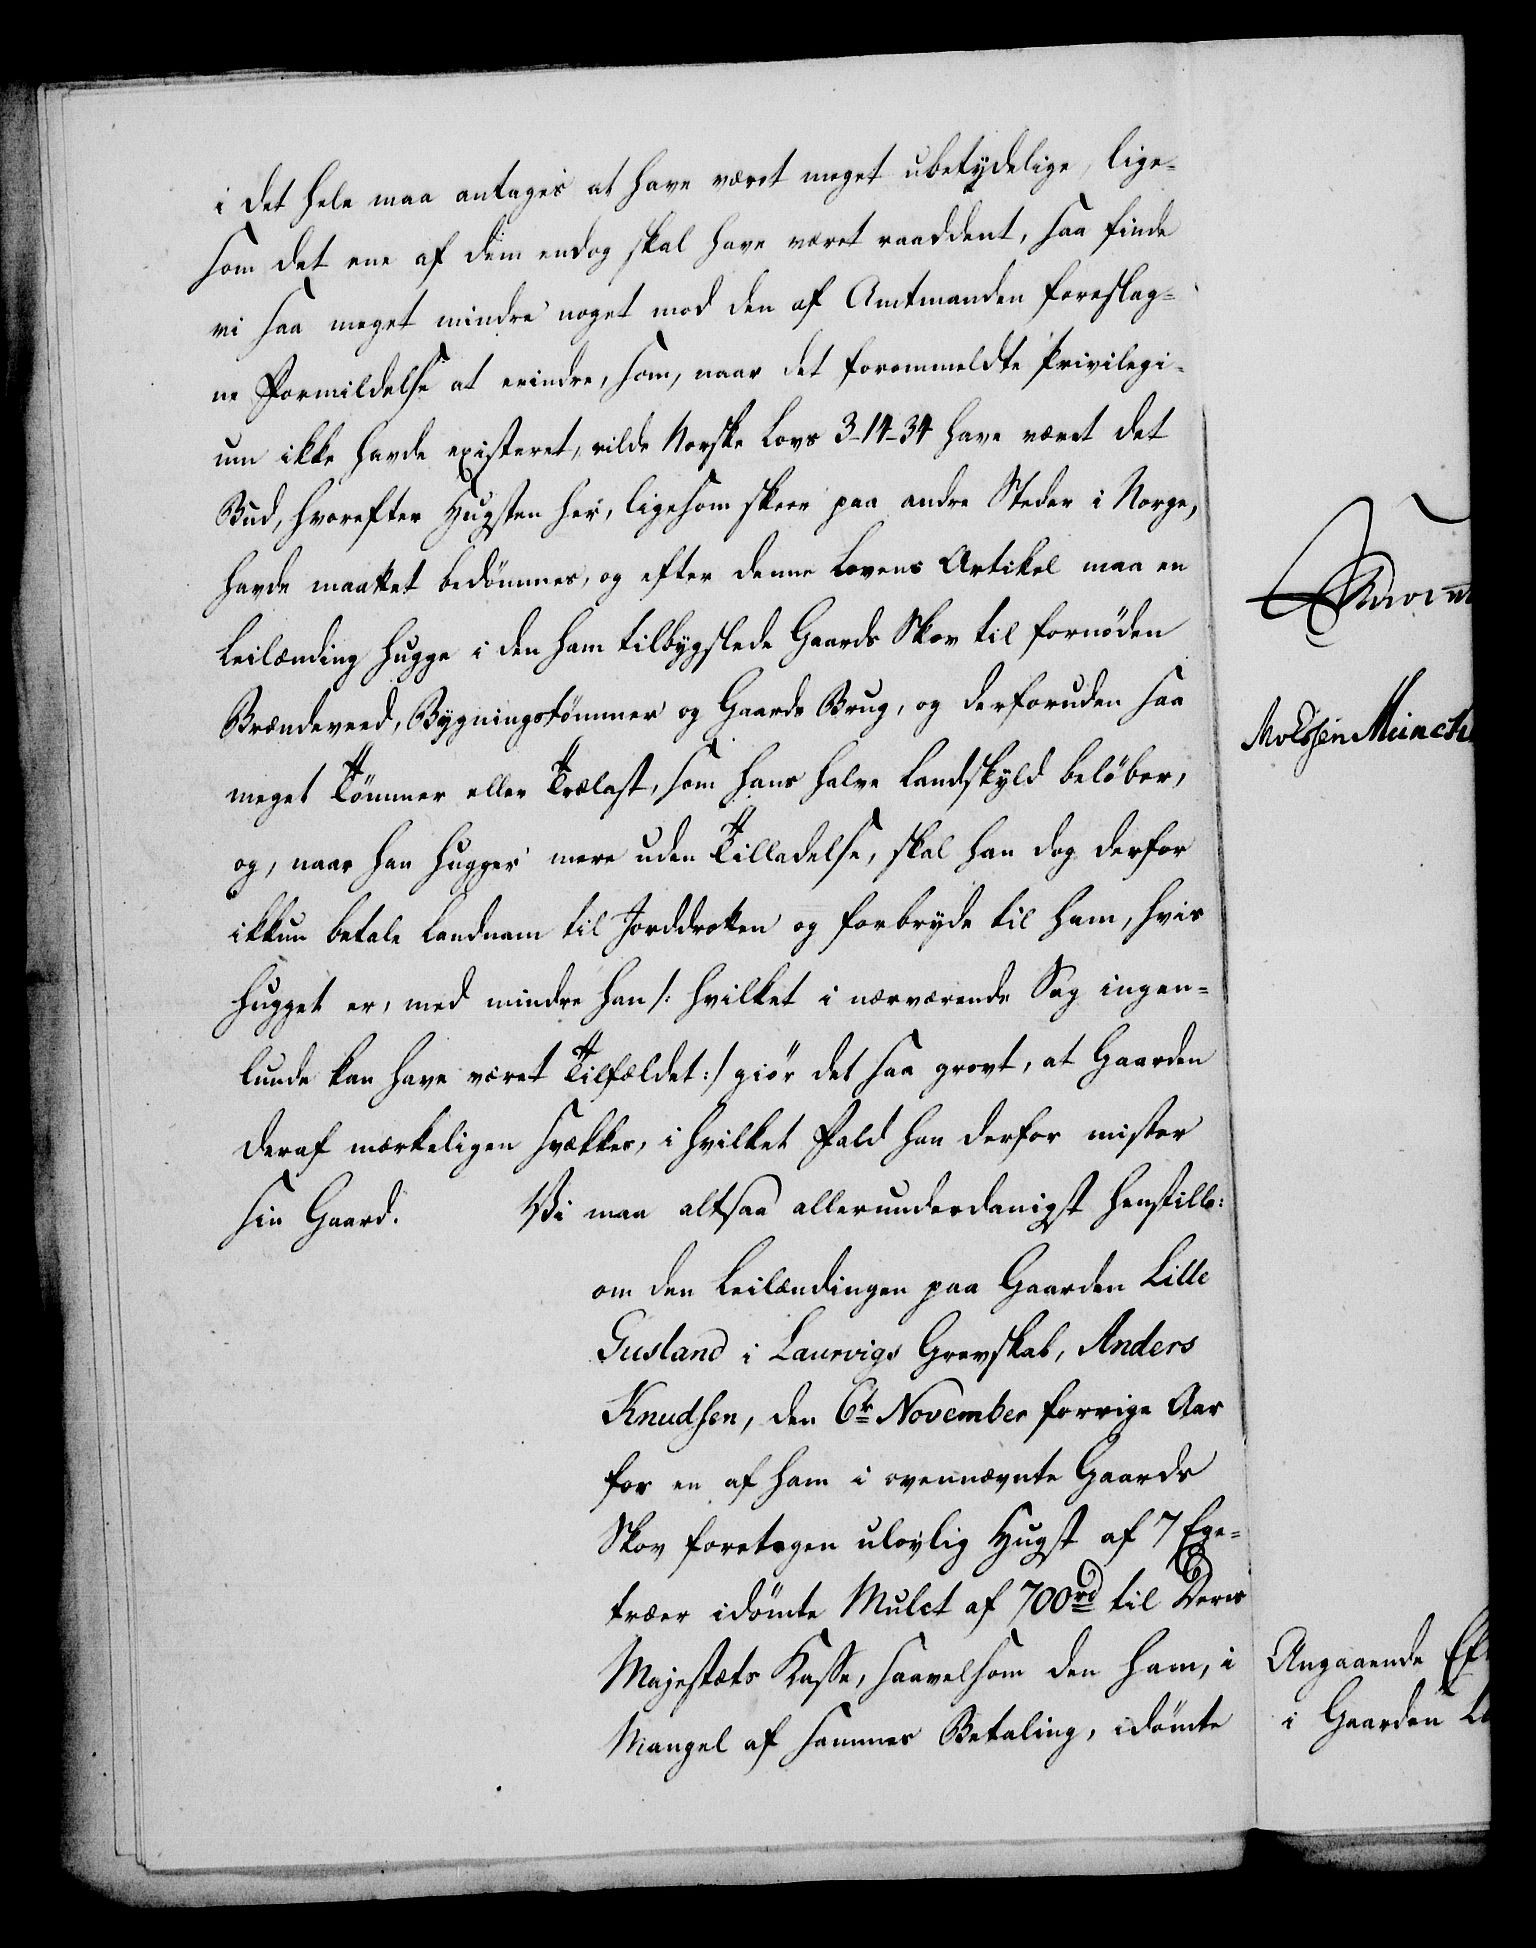 i det hele maa antages at have været meget ubetydelige, lige-
som det ene af dem endog skal have været raaddent, saa finde
vi saa meget mindre noget mod den af Amtmanden foreslag-
ne Formildelse at erindre, som, naar det forommeldte Privilegi-
um ikke havde existeret, vilde Norske Lovs 3-14-34 have været det
Bud, hvorefter Hugsten her, ligesom skeer paa andre Steder i Norge,
havde maattet bedömmes, og efter denne Lovens Artikel maa en
Leilænding hugge i den ham tilbygslede Gaards Skov til fornöden
Brændeveed, Bygningstömmer og Gaards Brug, og derforuden saa
meget Tömmer eller Trælast, som hans halve Landskyld belöber,
og, naar han hugger mere uden Tilladelse, skal han dog derfor
ikkun betale Landnam til Jorddrotten og forbryde til ham, hvis
hugget er, med mindre han /: hvilket i nærværende Sag ingen-
lunde kan have været Tilfældet :/ giör det saa grovt, at Gaarden
deraf mærkeligen svækkes, i hvilket Fald han derfor mister
sin Gaard. Vi maa altsaa allerunderdanigst henstille:
om den Leilændingen paa Gaarden Lille
Gusland i Laurvigs Grevskab, Anders
Knudsen, den 6te November forrige Aar
for en af ham i ovennævnte Gaards
Skov foretagen ulovlig Hugst af 7 Ege-
træer idömte Mulct af 700rd til Deres
Majestæts Kasse, saavelsom den ham, i
Mangel af sammes Betaling, idömte
Münch
Angaaende
i Gaarden